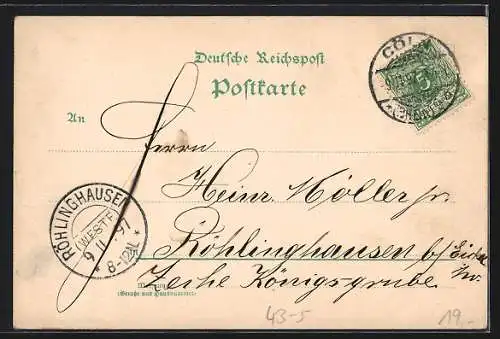 Deutsche Reichspost
Postkarte
CÖLN
5
An
Herrn
Heinr. Möller jr.
RÖHLINGHAUSEN
(WESTF.)
9 11 97
8-12N.
Röhlinghausen b/
Zeche Königsgrube
Wohnung
(Straße und Hausnummer)
43-5
19,-